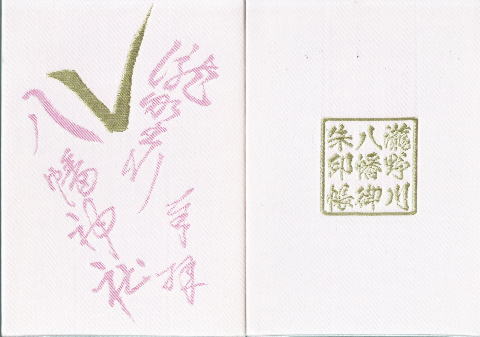 奉拝
瀧野川
八幡神社
瀧野川
八幡御
朱印帳